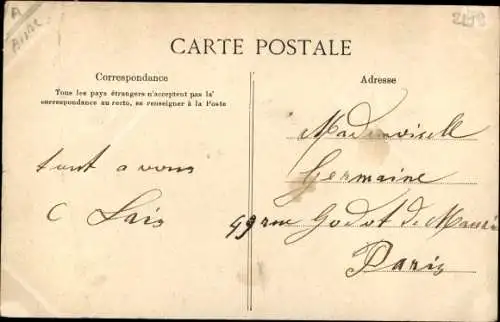 A
Aisne
2LM9
CARTE POSTALE
Correspondance
Tous les pays étrangers n'acceptent pas la'
correspondance au recto, se renseigner à la Poste
tout a vous
C Lais
Adresse
Mademoiselle
Germaine
49 rue Godot de Mauroi
Paris